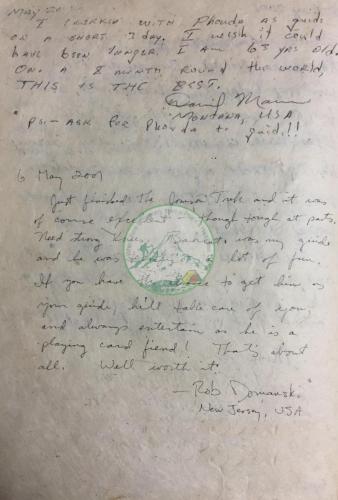 May 20
I trekked with Phonda as guide
on a short 3 day. I wish it could
have been longer. I am 63 yrs old.
On a 8 month round the world,
THIS IS THE BEST.
Daniel
MONTANA, USA
PS:- ASK FOR Phonda to guid.!!
6 May 2001
Just finished the Jomsom Trek and it was
of course excellent - though tough at pats.
Need strong knees. was my guide
and he was lot of fun.
If you have chance to get him as
your guide, he'll take care of you,
and always entertain as he is a
playing card fiend! That's about
all. Well worth it.
- Rob Domanski
New Jersey, USA